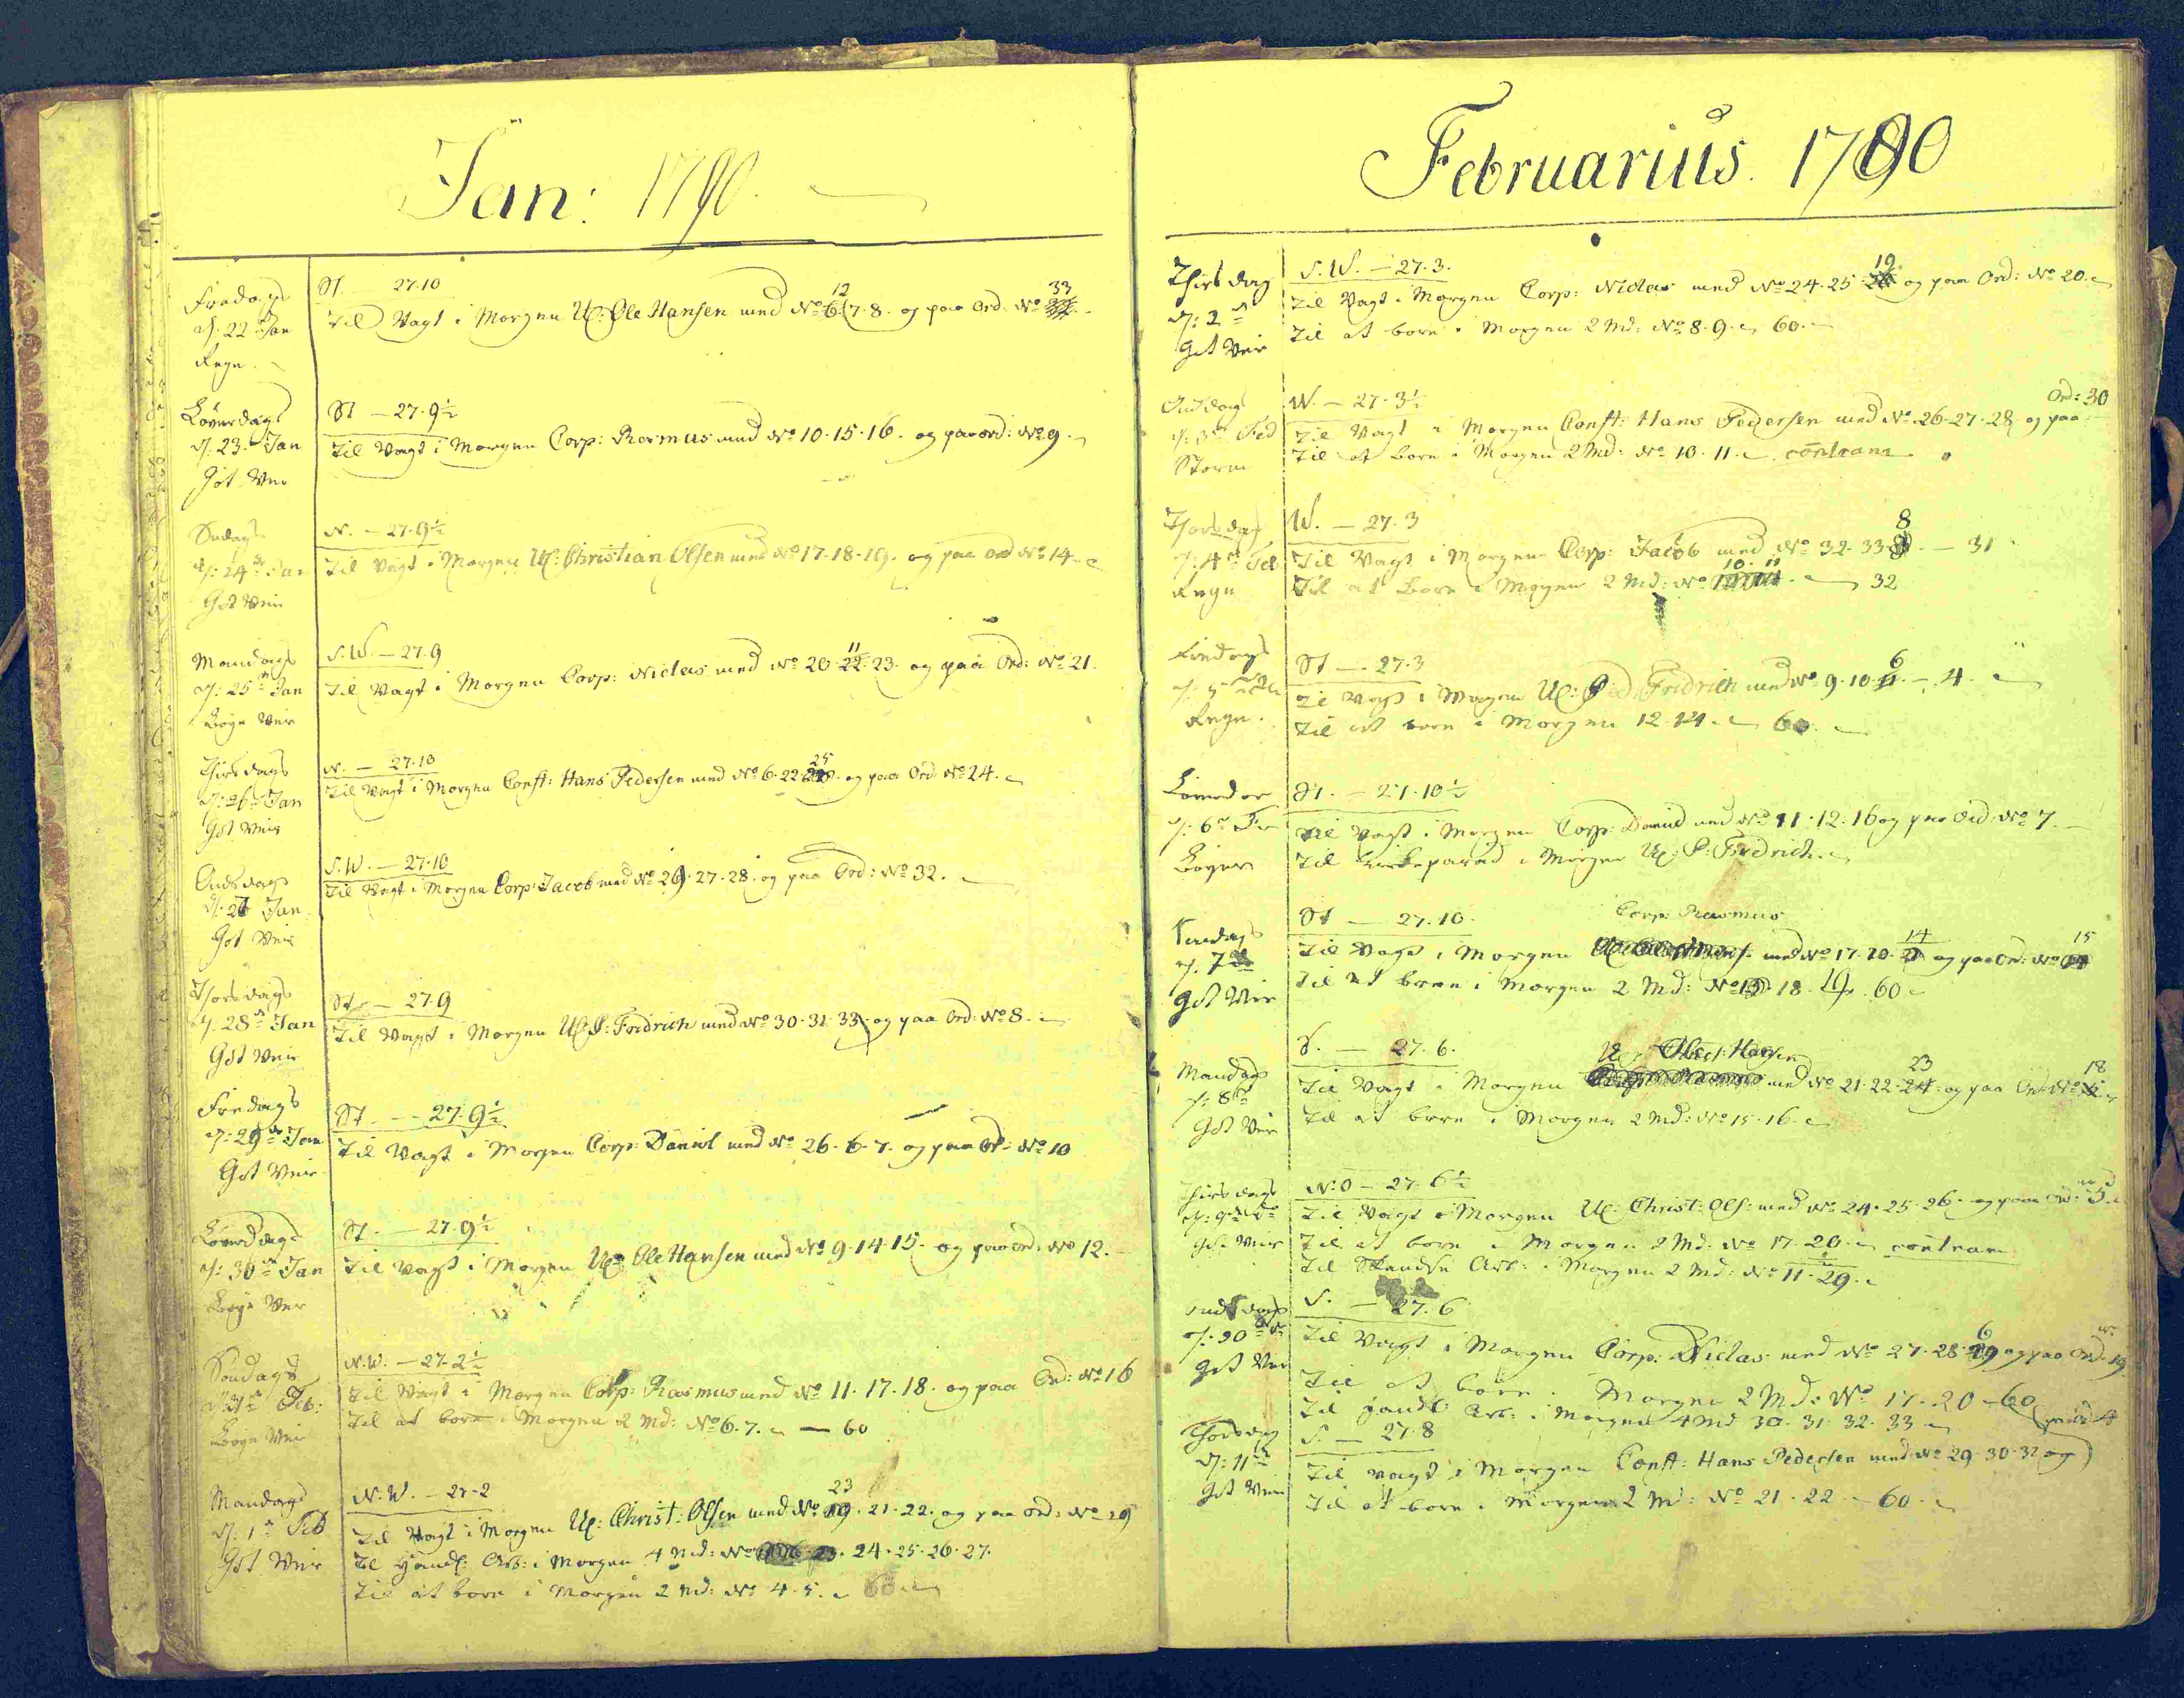 Jan: 1790.
Fredags
d: 22 Jan
Regn.
St. 27.10
Til Vagt i Morgen Uc: Ole Hansen med No 6. 12 7.8. og paa Ord. No 33
Løverdags
d: 23. Jan
Got Veir
St — 27.9½
Til Vagt i Morgen Corp: Rasmus med No 10.15.16. og paa ord: No 9.
Sødags
d: 24de Jan
Got Veir
N. — 27.9½
Til Vagt i Morgen Uc: Christian Olsen med No 17-18-19. og paa Ord No 14.
Mandags
d: 25de Jan
Bøye Veir
S.W. — 27.9
Til Vagt i Morgen Corp: Niclas med No 20.22.11 23. og paa Ord: No 21.
Thirsdags
d: 26 Jan
Got Veir
N. — 27.10
Til Vagt i Morgen Const: Hans Pedersen med No 6.22. 25 og paa Ord: No 24.
Onsdags
d: 27 Jan
Got Veir
S.W. — 27.10
Til Vagt i Morgen Corp: Jacob med No 29.27-28. og paa Ord: No 32.
Thorsdags
d: 28de Jan
Got Veir
St — 27.9
Til Vagt i Morgen Uc: P: Fredrich med No 30-31-33. og paa Ord: No 8.
Fredags
d: 29de Jan
Got Veir
St. — 27.9½
Til Vagt i Morgen Corp: Daniel med No 26.6.7. og paa Ord: No 10
Løverdags
d: 30te Jan
Bøye Veir
St. — 27.9½
Til Vagt i Morgen Uc: Ole Hansen med No 9.14.15. og paa Ord: No 12.
Søndags
d: 31te Feb:
Bøye Veir
N.W. — 27.2½
Til Vagt i Morgen Corp: Rasmus med No 11.17.18. og paa Ord: No 16
Til at bere i Morgen 2 Md: No 6.7. — 60
Mandags
d: 1te Feb
Got Veir
N.W. — 27-2
Til Vagt i Morgen Uc: Christ: Olsen med No 19. 23 21-22. og paa Ord: No 29
Til Handl: Arb: i Morgen 4 Md: No 24.25.26.27.
Til at bere i Morgen 2 Md: No 4.5. 60
Februarius. 1790
Thirsdag
d: 2de
Got Veir
S.W. — 27.3.
Til Vagt i Morgen Corp: Niclas med No 24.25. 19 og paa Ord: No 20.
Til at bere i Morgen 2 Md: No 8.9. 60.
Onsdags
d: 3de Feb
Storm
W. — 27.3½
Til Vagt i Morgen Const: Hans Pedersen med No 26-27-28. og paa Ord: 30
Til at bere i Morgen 2 Md: No 10.11. contram
Thorsdags
d: 4de Feb
Regn
W. — 27.3
Til Vagt i Morgen Corp: Jacob med No 32.33. 8 — 31
Til at bere i Morgen 2 Md: No 10. 11 — 32
Fredags
d: 5te
Regn.
St — 27.3
Til Vagt i Morgen Uc: P: Fredrich med No 9.10. 6 — 4.
Til at bere i Morgen 12.14. 60.
d: 6te
Bøyer
St. — 27.10½
Til Vagt i Morgen Corp: Daniel med No 11.12.16 og paa Ord: No 7.
Til Kirkeparad i Morgen Uc: P: Fredrich.
d: 7de
Got Veir
St — 27.10.
Til Vagt i Morgen Corp: Rasmus med No 17.20. 14 og paa Ord: No 15
Til at bere i Morgen 2 Md: No 13.18. 19. 60
Mandags
d: 8de
Got Veir
S. — 27.6.
Til Vagt i Morgen Uc: Ole Hansen med No 21-22- 23 og paa Ord: No 18
Til at bere i Morgen 2 Md: No 15.16.
Thirsdags
d: 9de
Got Veir
N.O — 27.6½
Til Vagt i Morgen Uc: Christ: Ols: med No 24.25.26. og paa Ord: No 5.
Til at bere i Morgen 2 Md: No 17.20. contram
Til Skandse Arb: i Morgen 2 Md: No 11.29.
d: 10de
Got Veir
S. — 27.6
Til Vagt i Morgen Corp: Niclas med No 27.28. 6 og paa Ord: No 19
Til at bere i Morgen 2 Md: No 17.20 — 60
Til Handl: Arb: i Morgen 4 Md 30.31.32.33
Thorsdag
d: 11te
Got Veir
S. — 27.8
Til Vagt i Morgen Const: Hans Pedersen med No 29.30.32 og paa 4
Til at bere i Morgen 2 Md: No 21.22 — 60.